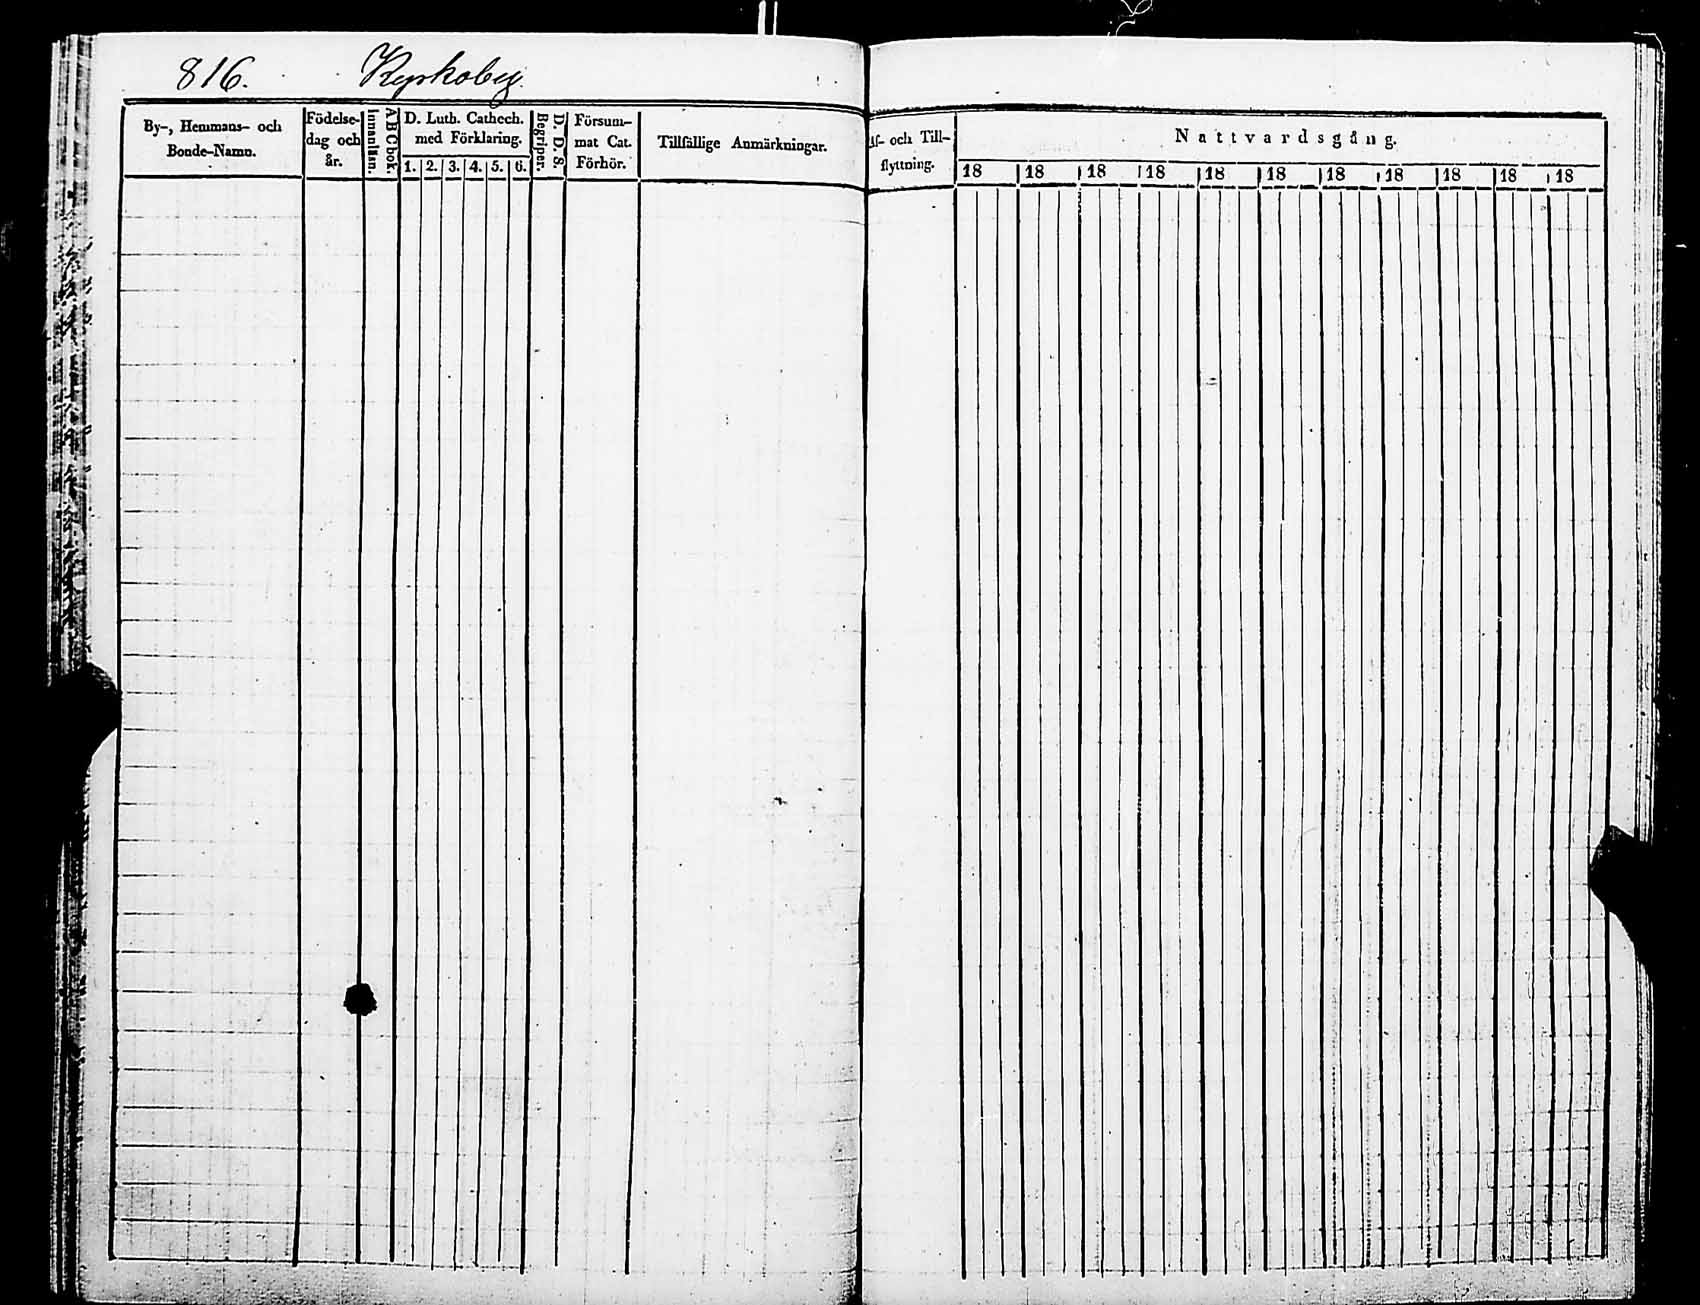 816. Kyrkoby.
By-, Hemmans- och
Bonde-Namn.
Födelse-
dag och
år.
Innanläsn.
ABCbok.
D. Luth. Cathech.
med Förklaring.
1. 2. 3. 4. 5. 6.
Begriper.
D. D. S.
Försum-
mat Cat.
Förhör.
Tillfällige Anmärkningar.
Af- och Till-
flyttning.
Nattvardsgång.
18 18 18 18 18 18 18 18 18 18 18